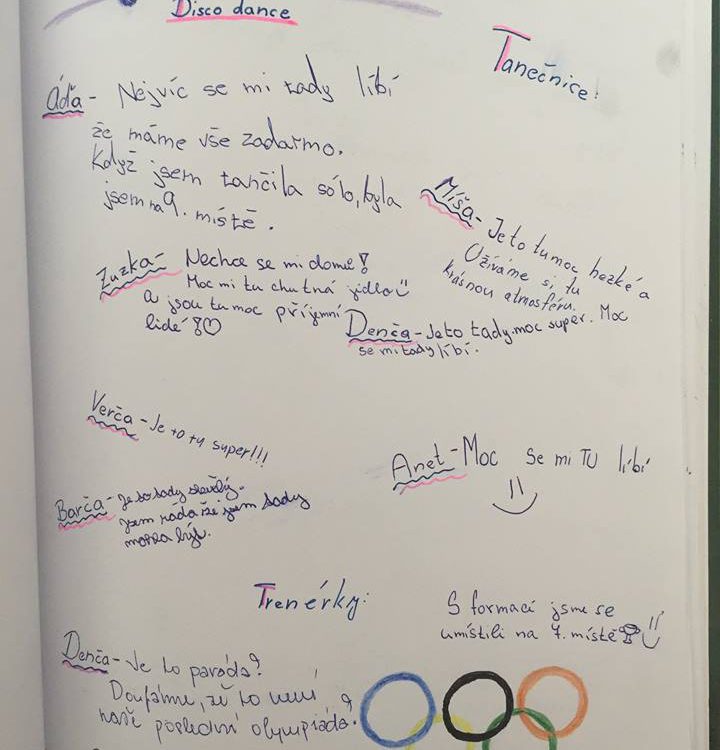 Disco dance
Tanečnice:
Áďa - Nejvíc se mi tady líbí
že máme vše zadarmo.
Když jsem tančila sólo, byla
jsem na 9. místě.
Míša - Je to tu moc hezké a
Užíváme si tu
krásnou atmosféru. Moc
Zuzka - Nechce se mi domů!
Moc mi tu chutná jídlo
a jsou tu moc příjemní
lidé
Denča - Je to tady moc super.
se mi tady líbí.
Verča - Je to tu super!!!
Anet - Moc se mi TU líbí
Barča - Je to tady skvělý.
Jsem ráda že jsem tady
mohla být.
Trenérky:
S formací jsme se
umístili na 7. místě
Denča - Je to paráda!
Doufáme, že to není
naše poslední olympiáda!